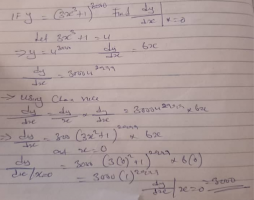 If y = (3x²+1)³⁰⁰⁰ Find dy/dx | x=0
let 3x²+1 = u
⇒ y = u³⁰⁰⁰ du/dx = 6x
dy/du = 3000u²⁹⁹⁹
→ Using Chain rule
dy/dx = dy/du × du/dx = 3000u²⁹⁹⁹ × 6x
⇒ dy/dx = 3000 (3x²+1)²⁹⁹⁹ × 6x
at x = 0
dy/dx | x=0 = 3000 (3(0)²+1)²⁹⁹⁹ × 6(0)
= 3000 (1)²⁹⁹⁹
dy/dx | x=0 = 3000